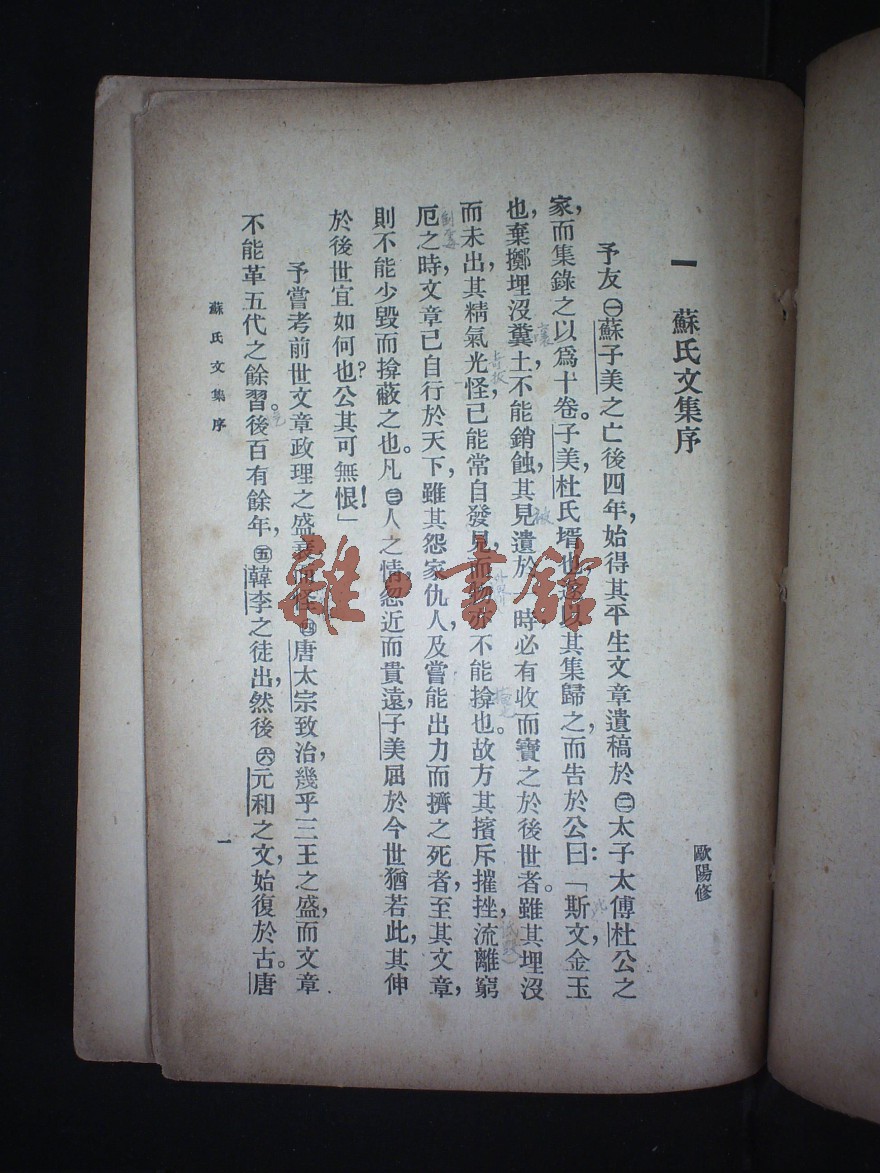 一　蘇氏文集序
歐陽修
予友㊀蘇子美之亡後四年，始得其平生文章遺稿於㊁太子太傅杜公之
家，而集錄之以爲十卷。子美，杜氏壻也，遂以其集歸之，而告於公曰：「斯文金玉
也，棄擲埋沒糞土，不能銷蝕，其見遺於　時，必有收而寶之於後世者。雖其埋沒
而未出，其精氣光怪，已能常自發見，而物亦不能揜也。故方其擯斥摧挫，流離窮
厄之時，文章已自行於天下，雖其怨家仇人，及嘗能出力而擠之死者，至其文章，
則不能少毀而揜蔽之也。凡㊂人之情，忽近而貴遠，子美屈於今世猶若此，其伸
於後世宜如何也？公其可無恨！」
予嘗考前世文章政理之盛衰，而怪㊃唐太宗致治，幾乎三王之盛，而文章
不能革五代之餘習。後百有餘年，㊄韓李之徒出，然後㊅元和之文，始復於古。唐
蘇氏文集序
一
雜·書館